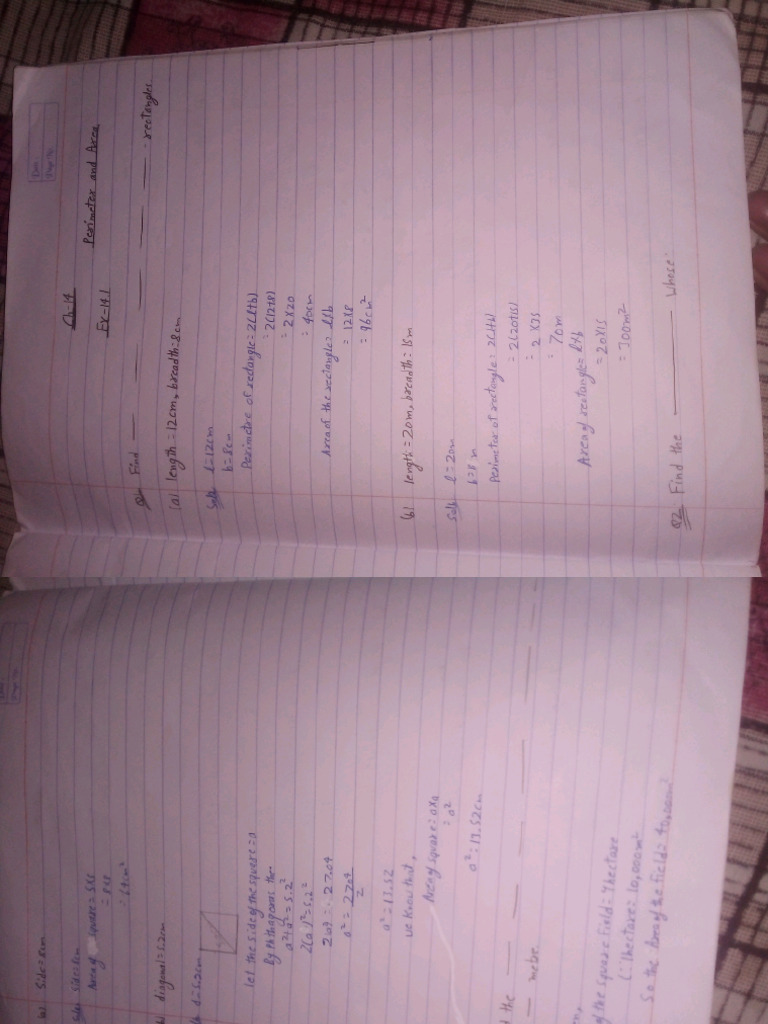 Date
Page No.
Ch-14
Ex-14.1 Perimeter and Area
Q1. Find — — — — . rectangles
(a) length = 12cm, breadth = 8cm
Soln l = 12cm
b = 8cm
Perimetre of rectangle = 2(l+b)
= 2(12+8)
= 2 × 20
= 40cm
Area of the rectangle = l×b
= 12×8
= 96cm²
(b) length = 20m, breadth = 15m
Soln l = 20m
Perimeter of rectangle = 2(l+b)
= 2(20+15)
= 2 × 35
= 70m
Area of rectangle = l×b
= 20×15
= 300m²
Q2. Find the ——— Whose:
(a) Side = 8cm
Soln Side = 8cm
Area of square = s×s
= 8×8
= 64cm²
diagonal = 5.2cm
d = 5.2cm
let the side of the square = a
By Phthagoras the-
a²+a² = 5.2²
2(a²) = 5.2²
= 27.04
a² = 27.04
2
a² = 13.52
we know that,
Area of square = a×a
= a²
a² = 13.52cm
the — — —
— metre.
of the square field = 4 hectare
(∵ 1 hectare = 10,000m²
So the Area of the field = 40,000m²